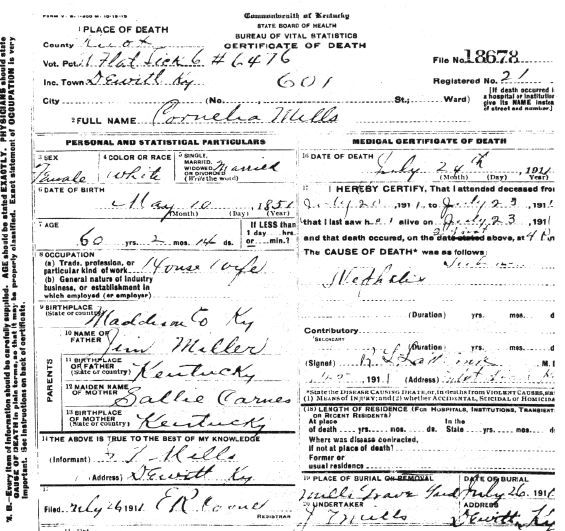 Commonwealth of Kentucky
STATE BOARD OF HEALTH
BUREAU OF VITAL STATISTICS
CERTIFICATE OF DEATH
1 PLACE OF DEATH
County Knox
Vot. Pct. 1 Flat Lick 6 # 6476
File No. 18678
Inc. Town Dewitt Ky
601
Registered No. 21
City (No. St.; Ward)
[If death occurred
a hospital or institution
give its NAME instead
of street and number.]
2 FULL NAME Cornelia Mills
PERSONAL AND STATISTICAL PARTICULARS
3 SEX
Female
4 COLOR OR RACE
White
5 SINGLE,
MARRIED,
WIDOWED
OR DIVORCED
(Write the word)
Married
6 DATE OF BIRTH
May 10 1851
(Month) (Day) (Year)
7 AGE
60 yrs. 2 mos. 14 ds.
If LESS than
1 day hrs.
or min.?
8 OCCUPATION
(a) Trade, profession, or
particular kind of work House wife
(b) General nature of industry
business, or establishment in
which employed (or employer)
9 BIRTHPLACE
(State or country) Maddison Co Ky
PARENTS
10 NAME OF
FATHER Jim Miller
11 BIRTHPLACE
OF FATHER
(State or country) Kentucky
12 MAIDEN NAME
OF MOTHER Sallie Carnes
13 BIRTHPLACE
OF MOTHER
(State or country) Kentucky
14 THE ABOVE IS TRUE TO THE BEST OF MY KNOWLEDGE
(Informant) Mills
(Address) Dewitt Ky
Filed July 26 1911
REGISTRAR
MEDICAL CERTIFICATE OF DEATH
16 DATE OF DEATH
July 24th 1911
(Month) (Day) (Year)
17 I HEREBY CERTIFY, That I attended deceased from
July 20 1911 to July 23 191
that I last saw her alive on July 23 191
and that death occured, on the date stated above, at 4
The CAUSE OF DEATH* was as follows:
(Duration) yrs. mos.
Contributory
SECONDARY
(Duration) yrs. mos.
(Signed)
1911 (Address)
*State the DISEASE CAUSING DEATH, or in deaths from VIOLENT CAUSES, state
(1) MEANS OF INJURY; and (2) whether ACCIDENTAL, SUICIDAL or HOMICIDAL
(18) LENGTH OF RESIDENCE (FOR HOSPITALS, INSTITUTIONS, TRANSIENTS
OR RECENT RESIDENTS)
At place In the
of death yrs. mos. ds. State yrs. mos.
Where was disease contracted,
if not at place of death?
Former or
usual residence
19 PLACE OF BURIAL OR REMOVAL
Mills Grave Yard
DATE OF BURIAL
July 26 1911
20 UNDERTAKER
J Mills
ADDRESS
Dewitt Ky
N. B.—Every item of information should be carefully supplied. AGE should be stated EXACTLY. PHYSICIANS should state
CAUSE OF DEATH in plain terms, so that it may be properly classified. Exact statement of OCCUPATION is very
important. See instructions on back of certificate.